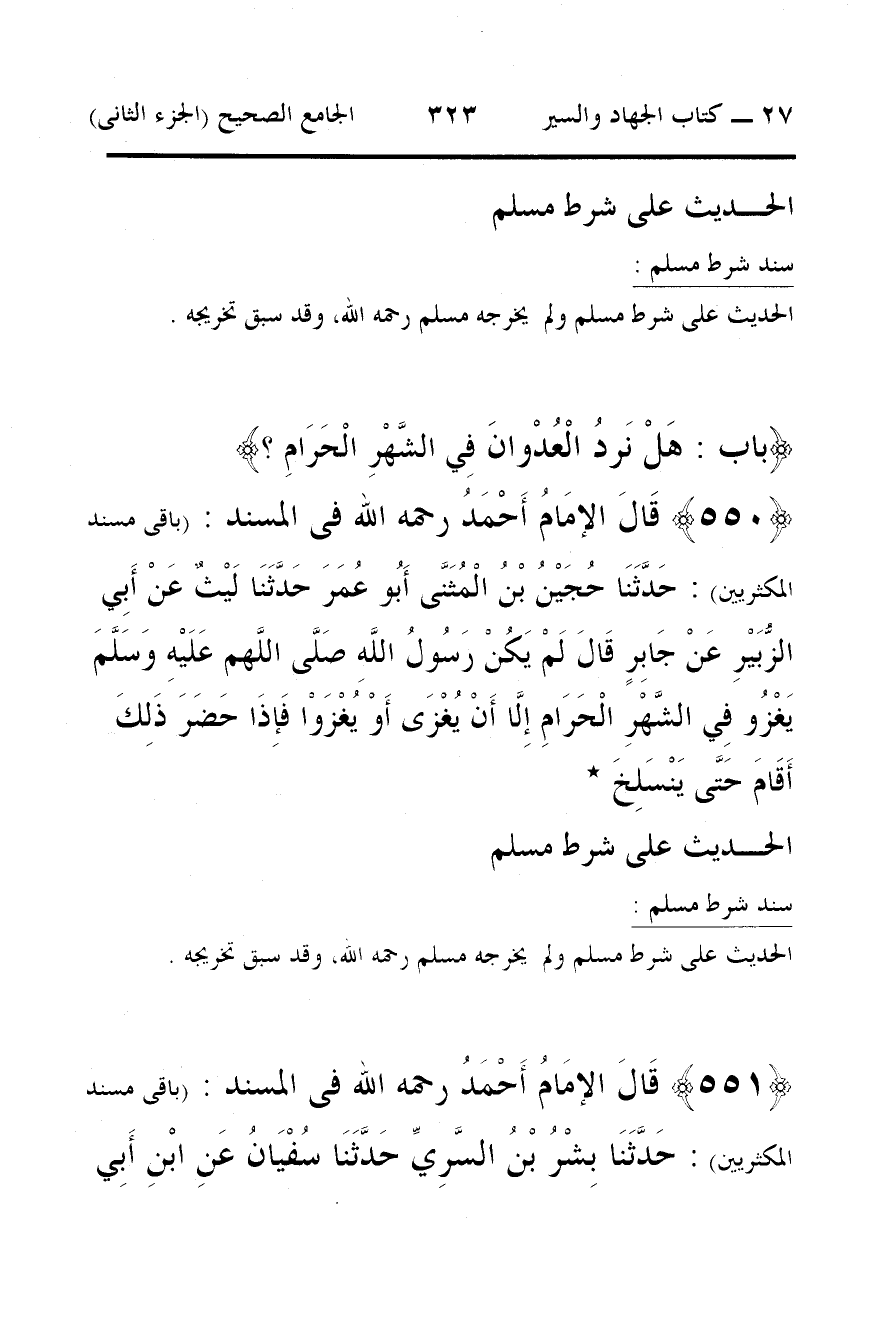 ٢٧ ــ كتاب الجهاد والسير ٣٢٣ الجامع الصحيح (الجزء الثانى)
الحـــديث على شرط مسلم
سند شرط مسلم :
الحديث على شرط مسلم ولم يخرجه مسلم رحمه الله، وقد سبق تخريجه .
﴿باب : هَلْ نَردُ الْعُدْوانَ فِي الشَّهْرِ الْحَرَامِ ؟﴾
﴿٥٥٠﴾ قَالَ الإمَامُ أَحْمَدُ رحمه الله فى المسند : (باقى مسند
المكثريين) : حَدَّثَنَا حُجَيْنُ بْنُ الْمُثَنَّى أَبُو عُمَرَ حَدَّثَنَا لَيْثٌ عَنْ أَبِي
الزُّبَيْرِ عَنْ جَابِرٍ قَالَ لَمْ يَكُنْ رَسُولُ اللَّهِ صَلَّى اللَّهم عَلَيْهِ وَسَلَّمَ
يَغْزُو فِي الشَّهْرِ الْحَرَامِ إِلَّا أَنْ يُغْزَى أَوْ يُغْزَوْا فَإِذَا حَضَرَ ذَلِكَ
أَقَامَ حَتَّى يَنْسَلِخَ *
الحـــديث على شرط مسلم
سند شرط مسلم :
الحديث على شرط مسلم ولم يخرجه مسلم رحمه الله، وقد سبق تخريجه .
﴿٥٥١﴾ قَالَ الإمَامُ أَحْمَدُ رحمه الله فى المسند : (باقى مسند
المكثريين) : حَدَّثَنَا بِشْرُ بْنُ السَّرِيِّ حَدَّثَنَا سُفْيَانُ عَنِ ابْنِ أَبِي